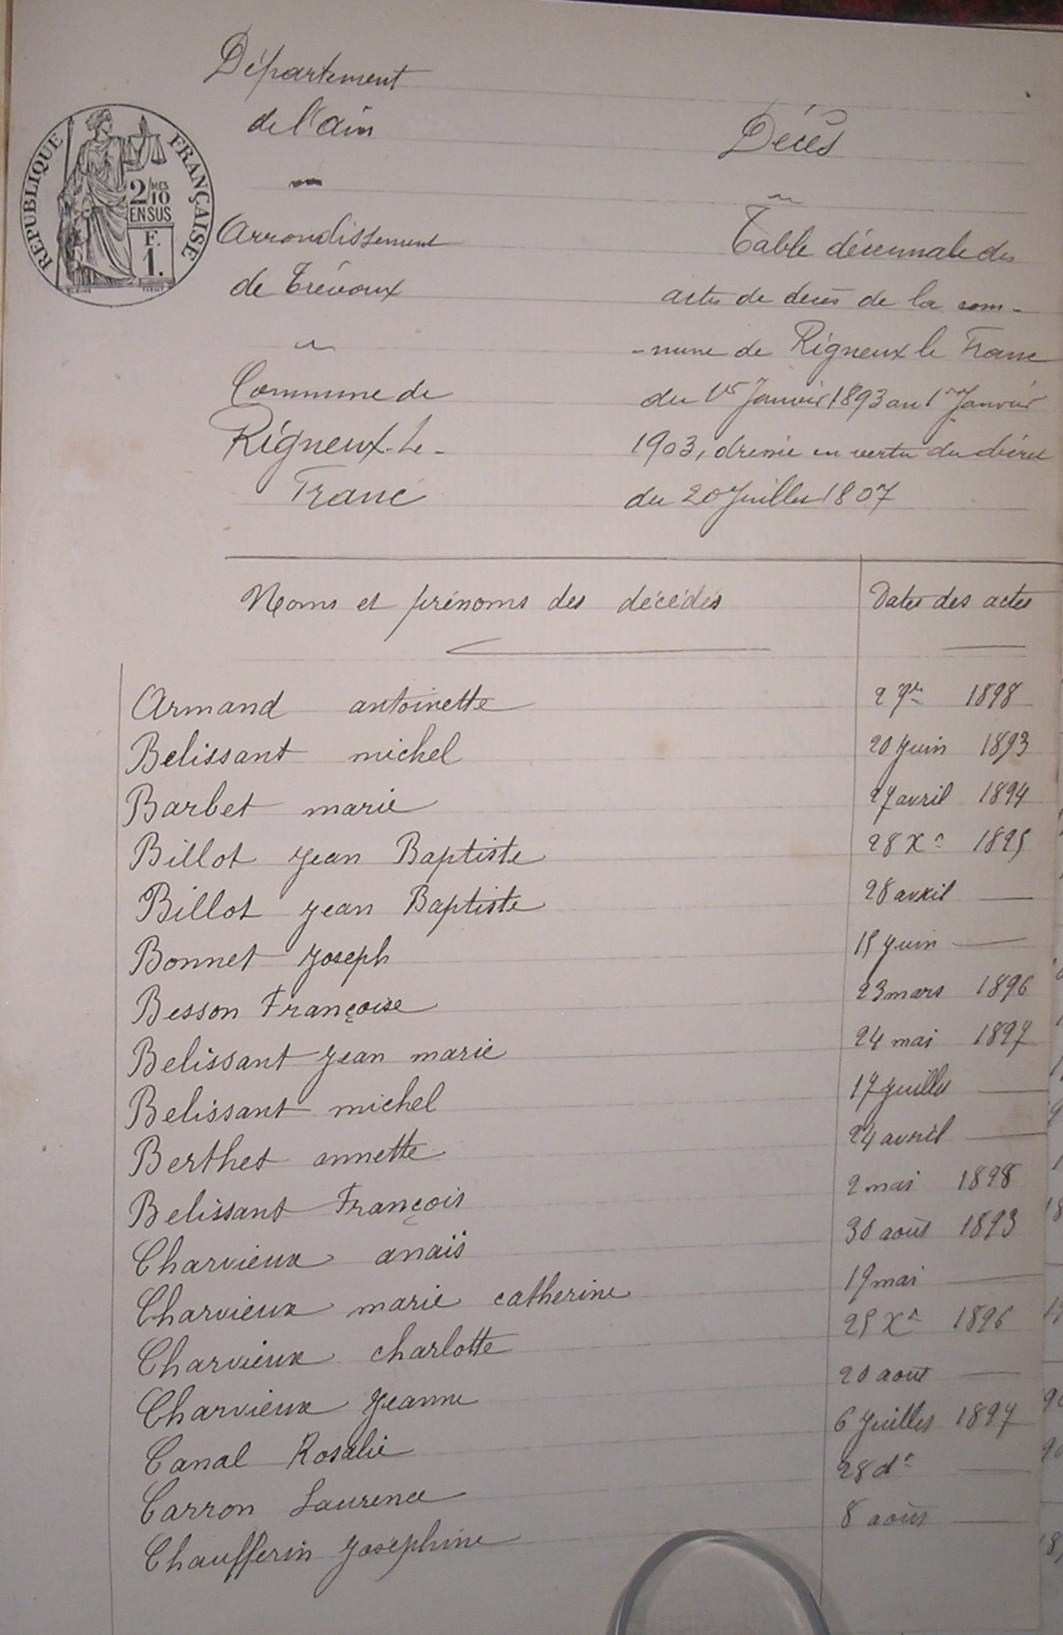 Département
de l'ain
Arrondissement
de Trévoux
Commune de
Rigneux-le-
Franc
RÉPUBLIQUE FRANÇAISE
2/10
EN SUS
F.
1.
Décès
Table décennale des
actes de décès de la com-
-mune de Rigneux le Franc
du 1er Janvier 1893 au 1er Janvier
1903, dressée en vertu du décret
du 20 Juillet 1807
Noms et prénoms des décédés Dates des actes
Armand antoinette 2 7re 1898
Belissant michel 20 juin 1893
Barbet marie 27 avril 1894
Billot Jean Baptiste 28 Xre 1895
Billot Jean Baptiste 28 avril —
Bonnet Joseph 15 Juin —
Besson Françoise 23 mars 1896
Belissant Jean marie 24 mai 1897
Belissant michel 17 Juillet —
Berthet annette 24 avril —
Belissant François 2 mai 1898
Charvieux anaïs 30 août 1893
Charvieux marie catherine 19 mai —
Charvieux charlotte 25 Xre 1896
Charvieux Jeanne 20 août —
Canal Rosalie 6 Juillet 1897
Carron Laurence 28 do —
Chaufferin Joséphine 8 août —